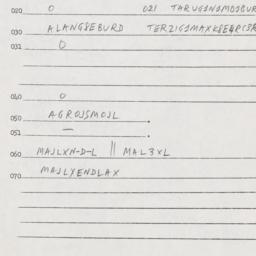 020 O 021 THRUGJNJMOJBUR
030 ALANG8EBURD TERZIGJMAXK8E4RC8A
031 O
040 O
050 AGROJSMOJL .
051 — .
060 MAJLXN-D-L || MAL3XL
070 MAJLYENDLAX